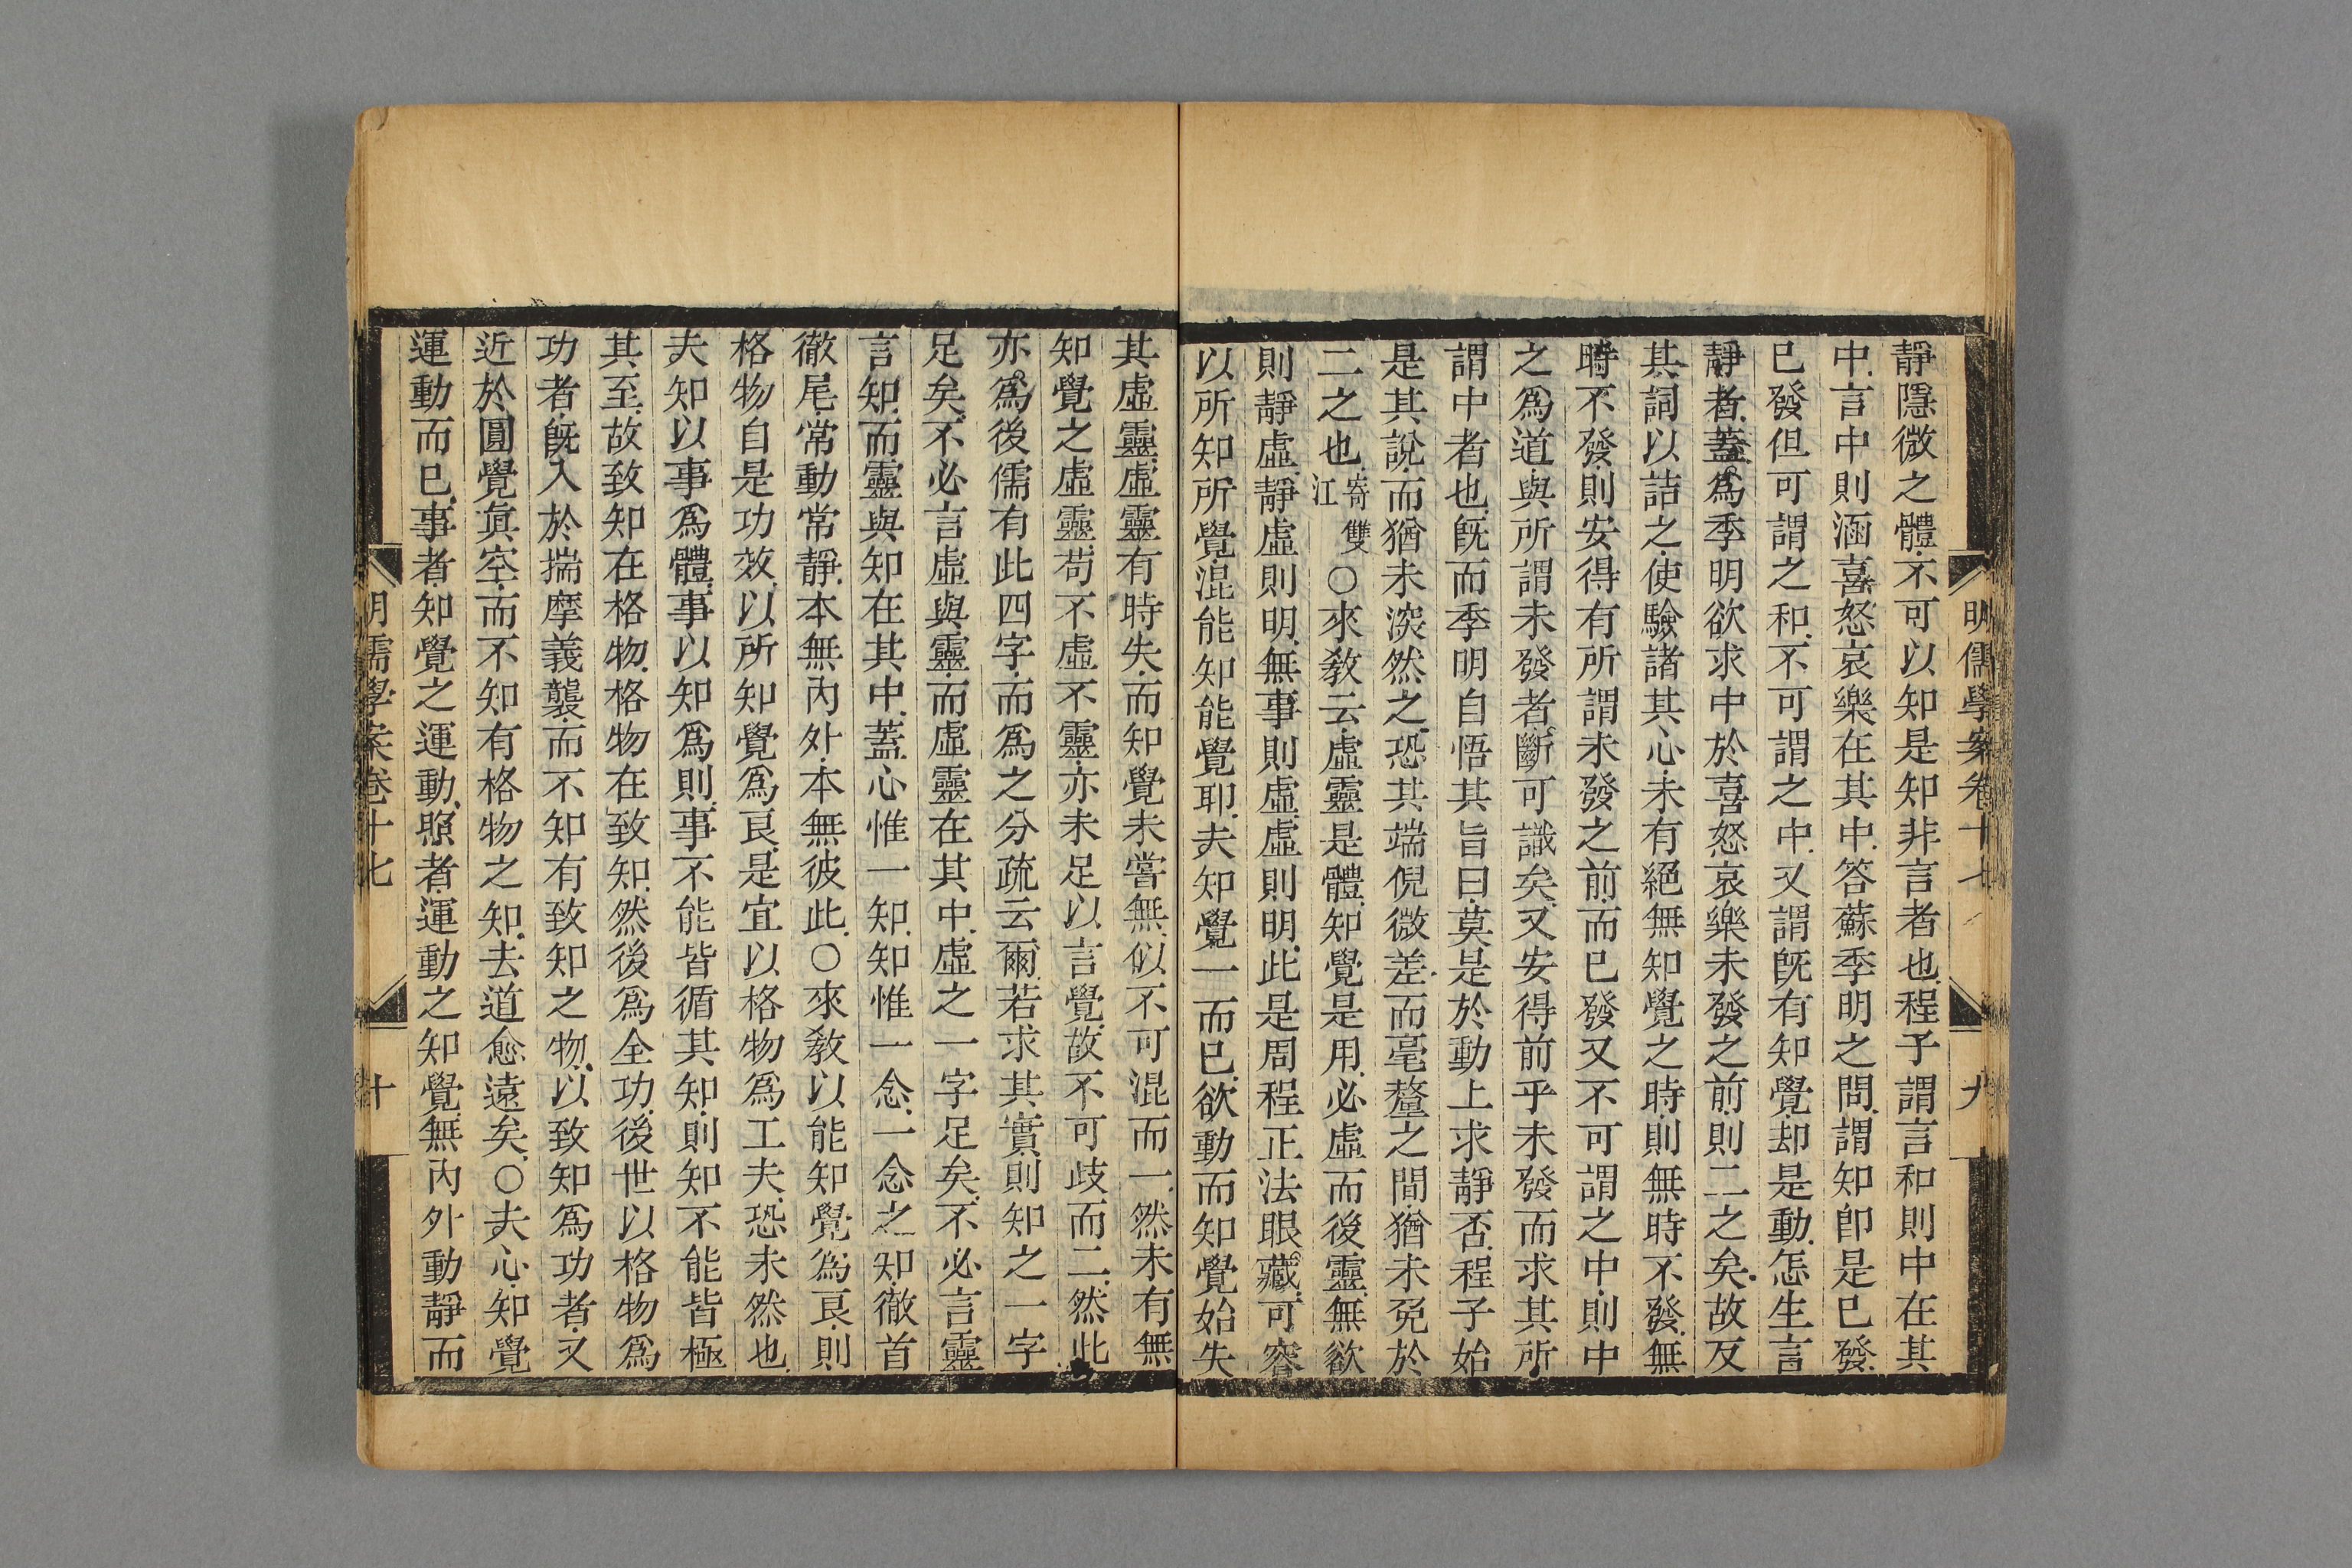 明儒學案卷十七
九
靜隱微之體不可以知是知非言者也程子謂言和則中在其
中言中則涵喜怒哀樂在其中答蘇季明之問謂知卽是已發
已發但可謂之和不可謂之中又謂旣有知覺却是動怎生言
靜者蓋爲季明欲求中於喜怒哀樂未發之前則二之矣故反
其詞以詰之使驗諸其心未有絕無知覺之時則無時不發無
時不發則安得有所謂未發之前而已發又不可謂之中則中
之爲道與所謂未發者斷可識矣又安得前乎未發而求其所
謂中者也旣而季明自悟其旨曰莫是於動上求靜否程子始
是其說而猶未深然之恐其端倪微差而毫釐之間猶未免於
二之也寄雙江〇來敎云虛靈是體知覺是用必虛而後靈無欲
則靜虛靜虛則明無事則虛虛則明此是周程正法眼藏可容
以所知所覺混能知能覺耶夫知覺一而已欲動而知覺始失
其虛靈虛靈有時失而知覺未嘗無似不可混而一然未有無
知覺之虛靈苟不虛不靈亦未足以言覺故不可歧而二然此
亦爲後儒有此四字而爲之分疏云爾若求其實則知之一字
足矣不必言虛與靈而虛靈在其中虛之一字足矣不必言靈
言知而靈與知在其中蓋心惟一知知惟一念一念之知徹首
徹尾常動常靜本無內外本無彼此〇來敎以能知覺爲良則
格物自是功效以所知覺爲良是宜以格物爲工夫恐未然也
夫知以事爲體事以知爲則事不能皆循其知則知不能皆極
其至故致知在格物格物在致知然後爲全功後世以格物爲
功者旣入於揣摩義襲而不知有致知之物以致知爲功者又
近於圓覺眞空而不知有格物之知去道愈遠矣〇夫心知覺
運動而已事者知覺之運動照者運動之知覺無內外動靜而
明儒學案卷十七
十